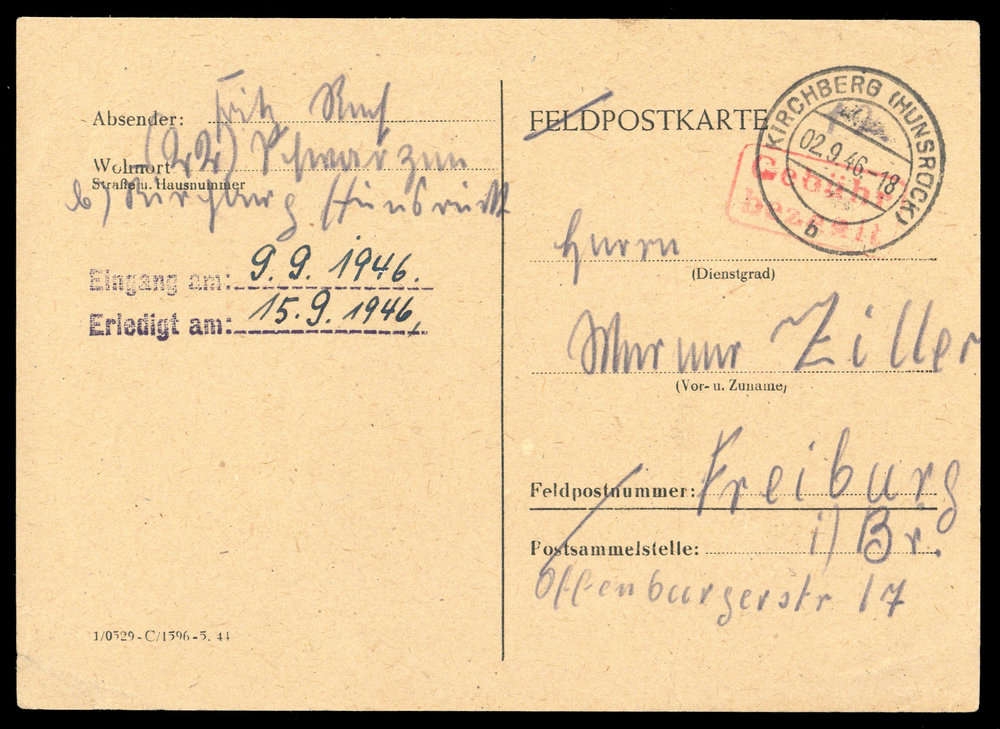 Absender: Fritz
Wohnort (22) Schwarzen
Straße u. Hausnummer
b) Kirchberg Hunsrück
Eingang am: 9.9.1946.
Erledigt am: 15.9.1946,
1/0529-C/1396-5. 44
FELDPOSTKARTE
KIRCHBERG (HUNSRÜCK)
02.9.46.-18
b
Gebühr
bezahlt
Herrn
(Dienstgrad)
Werner Ziller
(Vor- u. Zuname)
Feldpostnummer: Freiburg
Postsammelstelle: i/Br.
Offenburgerstr 17